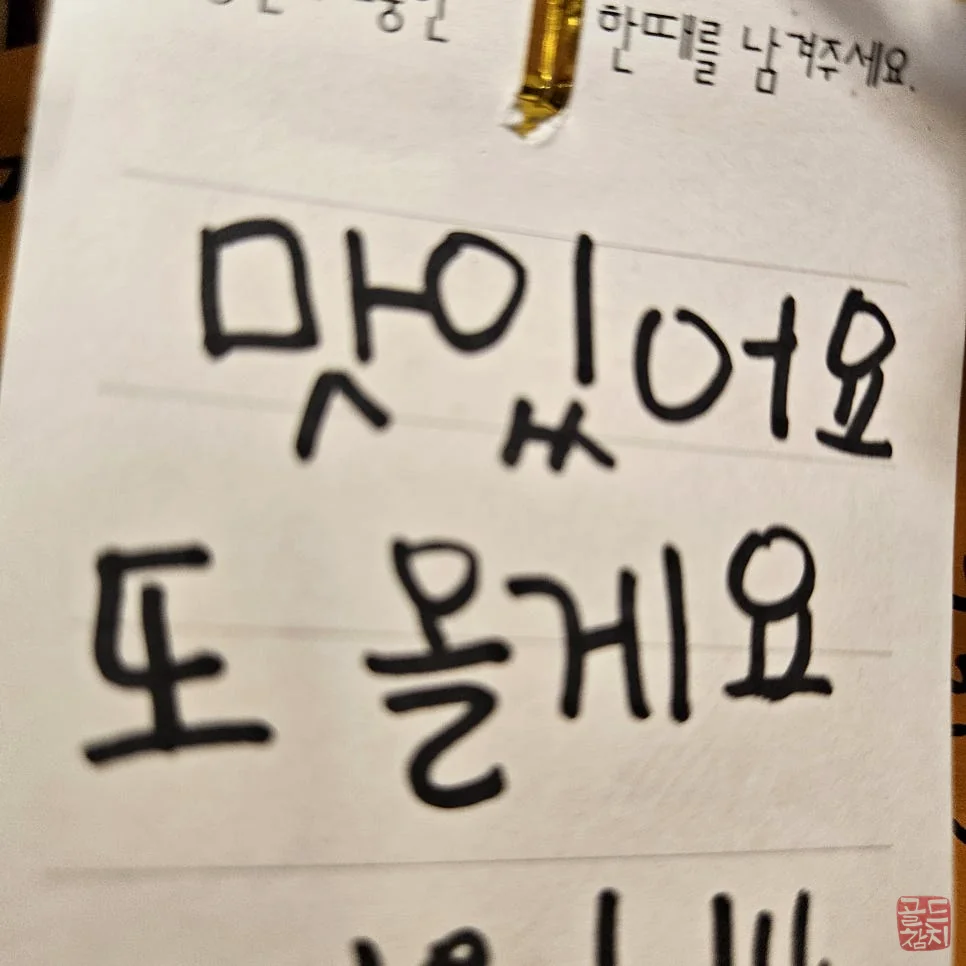 한때를 남겨주세요.
맛있어요
또 올게요
골드
참치